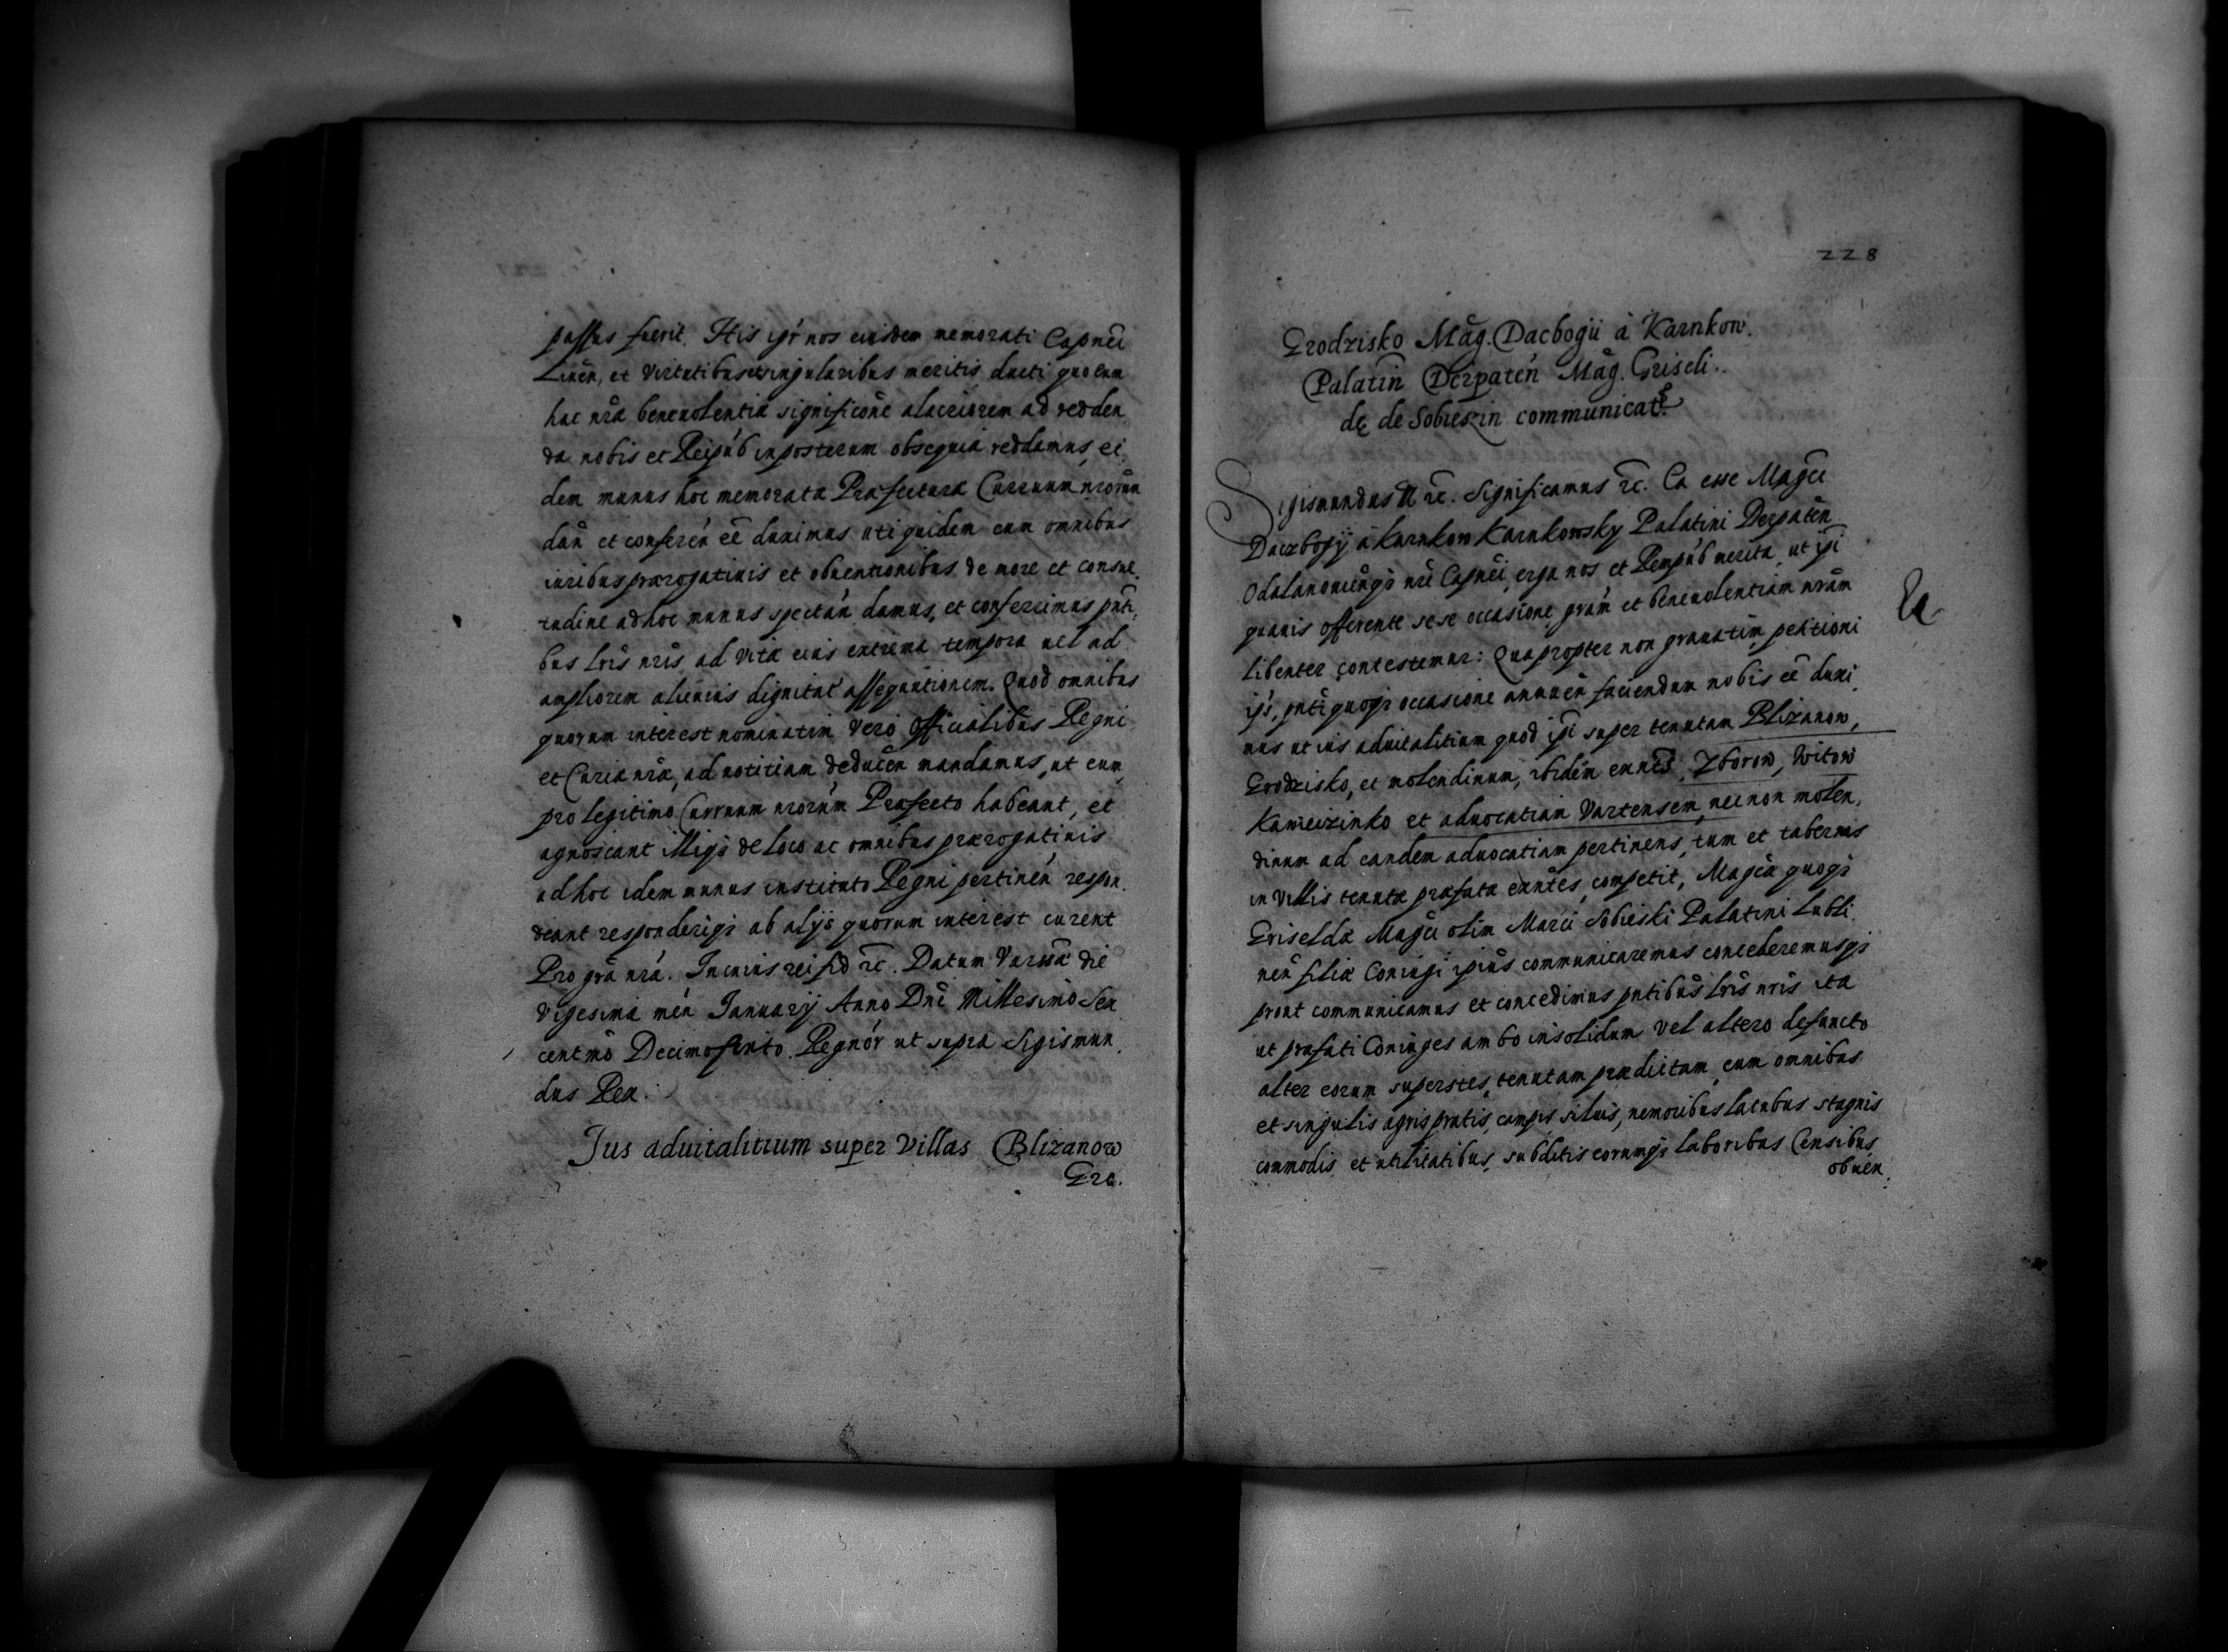 passus fuerit. His igr nos eiusdem memorati Capnei
Liuen, et Virtutibus et singularibus meritis ducti quo eum
hac nra beneuolentiæ significone alacriorem ad redden
da nobis et Reipub inposterum obsequia reddamus, ei
dem munus hoc memoratæ Præfecturæ Curruum nrorum
dan et conferen ee duximus uti quidem cum omnibus
iuribus prærogatiuis et obuentionibus de more et consue
tudine ad hoc munus spectan damus, et conferimus pnti
bus lris nris ad vitæ eius extrema tempora uel ad
ampliorem alicuius dignitat assequutionem. Quod omnibus
quorum interest nominatim vero Officialibus Regni
et Curiæ nræ, ad notitiam deducen mandamus, ut eum
pro legitimo Curruum nrorum Præfecto habeant, et
agnoscant illiqs de loco ac omnibus prærogatiuis
ad hoc idem munus instituto Regni pertinen respon
deant responderiqs ab alijs quorum interest curent
Pro gra nra. In cuius rei fid rc. Datum Varsæ die
vigesima men Januarij Anno Dni Millesimo Sex
centmo Decimo sexto. Regnor ut supra Sigismun
dus Rex.
Jus aduitalitium super Villas Blizanow
Gro.
228
Grodzisko Mag. Dacbogii à Karnkow.
Palatin Derpaten Mag. Griseli..
dę de Sobieszin communicat.
Sigismundus III rc. Significamus rc. Ea esse Magci
Daczbogij a Karnkow Karnkowsky Palatini Derpaten
Odalanouienqs nri Capnei, erga nos et Rempub merita, ut ipi
quauis offerente sese occasione gram et beneuolentiam nram
libenter contestemur: Quapropter non grauatim petitioni
ips, pnti quoqs occasione annuen faciendum nobis ee duxi
mus ut ius aduitalitium quod ipi super tenutam Blizanow,
Grodzisko, et molendinum, ibidem eunts, Zborow, Witow
Kamieizinko et aduocatiam Vartensem, nec non molen,
dinum ad eandem aduocatiam pertinens, tum et tabernas
in villis tenutæ præfatæ exntes, competit, Magcæ quoqs
Griseldæ Magci olim Marci Sobieski Palatini Lubli
nen filiæ Coniugi ipius communicaremus concederemusqs
prout communicamus et concedimus pntibus lris nris ita
ut præfati Coniuges ambo insolidum vel altero defuncto
alter eorum superstes, tenutam prædictam, cum omnibus
et singulis agris pratis, campis siluis, nemoribus lacubus stagnis
commodis et utilitatibus, subditis eorumqs laboribus Censibus
obuen